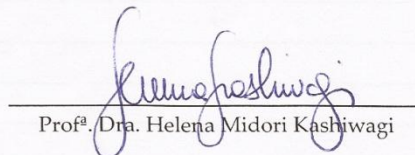 Profª. Dra. Helena Midori Kashiwagi